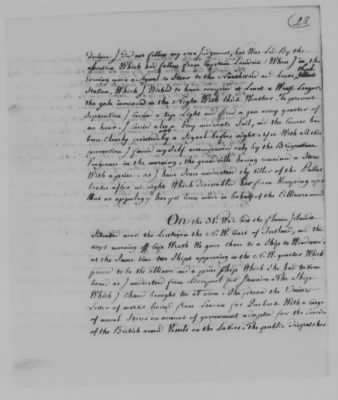 23
declare I did not follow my own Judgment, but Was Led By the
assertion Which had fallen from Captain Landais: When I in, the
Evening gave a Signal to Steer to the Northward and leave, that
Station, Which I Wished to have remained at Least a Week Longer.
the gale increased in the Night With thick Weather. To prevent
Separation I Carried a top Light and fired a gun every quarter of
an hour. I Carried also, Very moderate Sail, and the Course had
been Clearly pointed by a Signal before night, yet With all this
precaution I found my Self accompanied only by the Brigantine
Vengeance in the morning, the grandville having remained a Stern
With a prize. as I have Since understood the tiller of the Pallas
broke after mid night Which disenabled her from Keeping up
but no appology has yet been made in behalf of the Alliance.
On the 31. We Saw the flannin Islands
Situated near the Lewis on the N.W. Cast of Scotland, and the
next morning off Cape Wrath We gave chace to a Ship to Windward
at the Same time two Ships appearing in the N.W. quarter Which
proved to be the alliance and a prize Ship Which She had taken
bound as I understood from Liverpool for Jamaica. The Ship
Which I Chaced brought too at noon. She proved the Union
Letter of marke bound from London for Quebeck With a Cargo
of naval Stores on account of government adapted for the Service
of the British armed Vessels on the Lakes. The public dispatches